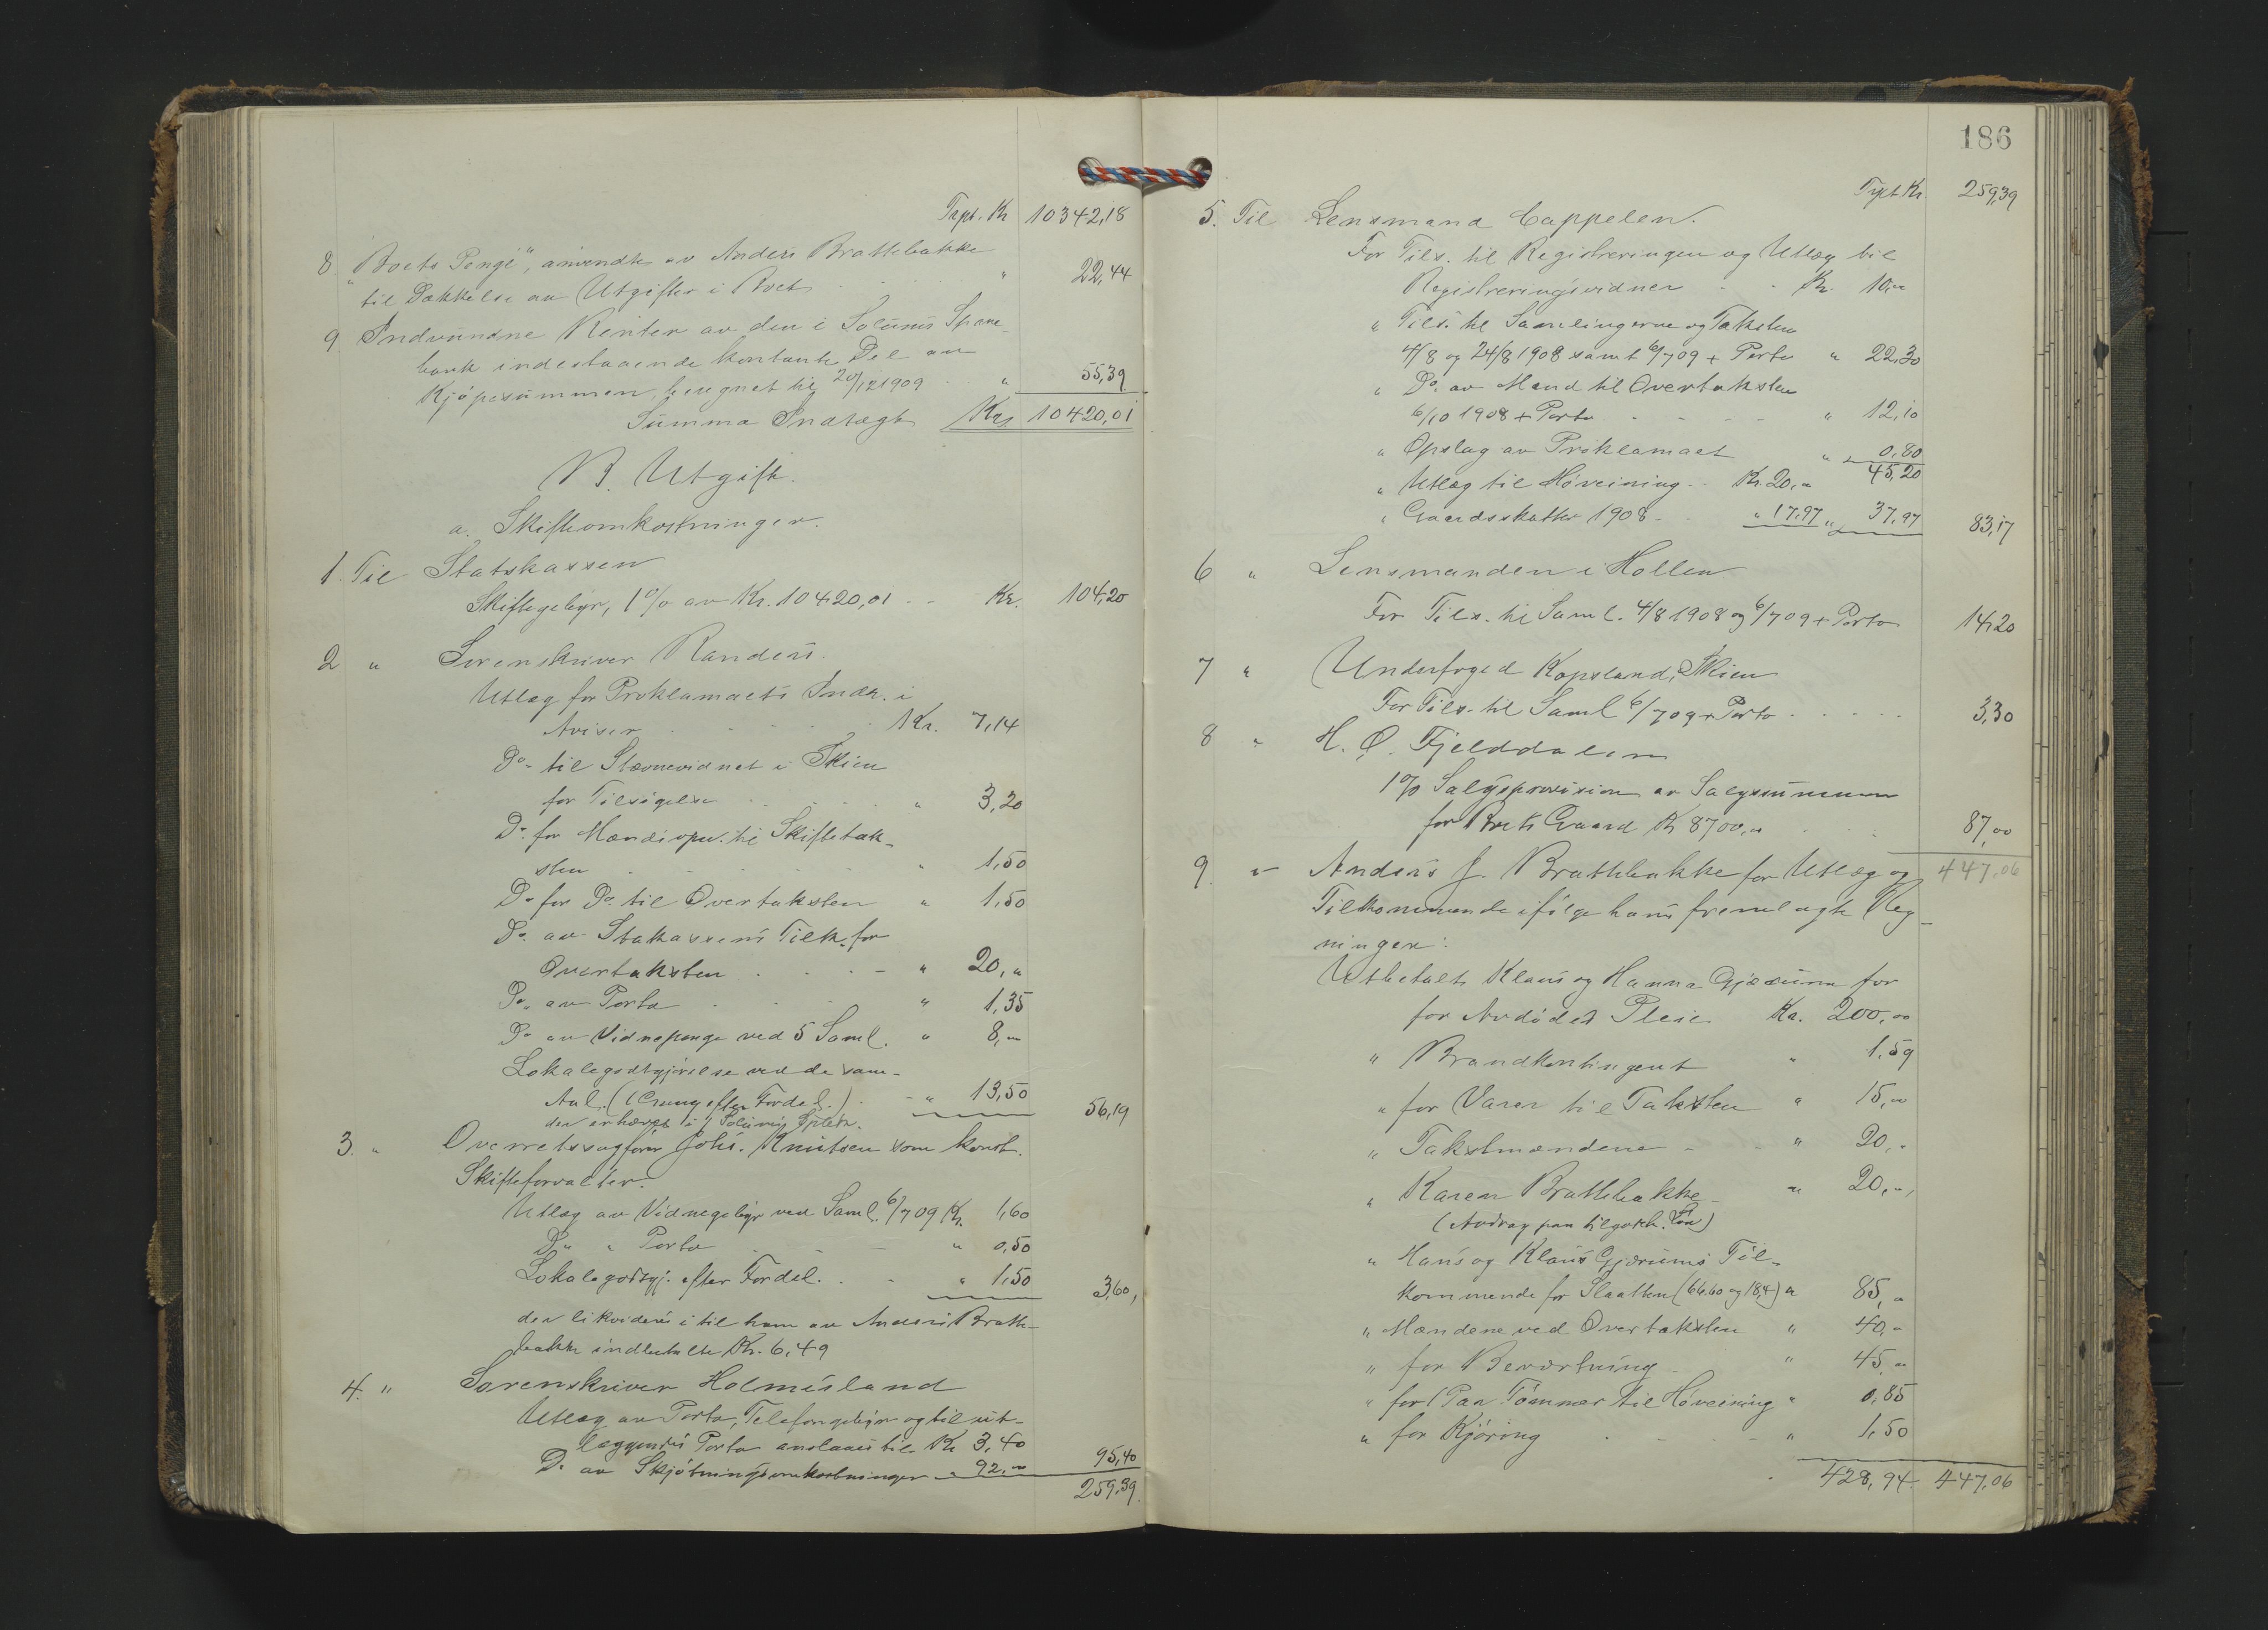 Trpt. Kr 10342,18
8 "Boets Penge", anvendte av Anders Brattebakke
til Dækkelse av Utgifter i Boet " 22,44
9 Indvundne Renter av den i Solums Spare-
bank indestaaende kontante Del av
Kjøpesummen, beregnet til 20/12 1909 " 55,39
Summa Indtægt Kr 10420,01
B. Utgift.
a. Skifteomkostninger.
1. Til Statskassen
Skiftegebyr, 1 % av Kr. 10420,01 - Kr. 104,20
2 " Sorenskriver Randers.
Utlæg for Proklamaets Indr. i
Aviser Kr. 7,14
Do. til Stævnevidnet i Skien
for Tilsigelse " 3,20
Do. for Mænds opn. til Skiftetak-
sten " 1,50
Do for Do. til Overtaksten " 1,50
Do. av Statskassens Tilk. for
Overtaksten - " 20,"
Do. av Porto " 1,35
Do av Vidnepenge ved 5 Saml. " 8,"
Lokalegodtgjørelse ved de sam-
(1 Gang efter Fordel.) - " 13,50 56,19
der er hævet i Solums
3. " Overretssagfører Johs. Knutsen som konst.
Skifteforvalter.
Utlæg av Vidnegebyr ved Saml. 6/7 09 Kr. 1,60
Do " Porto - " 0,50
Lokalegodtgj. efter Fordel. - " 1,50 3,60,
der likvideres i til ham av Anders Bratte-
bakke indbetalte Kr. 6,49
4. " Sorenskriver Holmesland
Utlæg av Porto, Telefongebyr og til ut-
læggendes Porto anslaaes til Kr 3,40
Do av Skjøtningsomkostninger " 92," 95,40
259,39
186
Trpt Kr 259,39
5. Til Lensmand Cappelen.
For Tils. til Registreringen og Utlæg til
Registreringsvidner - - Kr. 10,"
" Tils. til Samlingerne og Taksten
4/8 og 24/8 1908 samt 6/7 09 + Porto " 22,30
" Do. av Mænd til Overtaksten
6/10 1908 + Porto - - - " 12,10
" Opslag av Proklamaet " 0,80
45,20
" Utlæg til Høveining - Kr. 20,"
" Gaardsskatter 1908 - " 17,97 " 37,97 83,17
6 " Lensmanden i Hollen
For Tils. til Saml. 4/8 1908 og 6/7 09 + Porto 14,20
7 " Underfoged Kopsland, Skien
For Tils. til Saml 6/7 09 + Porto 3,30
8 " H. O. Fjelddalen
1 % Salgsprovision av Salgssummen
for Boets Gaard Kr 8700," 87,00
9. " Anders J. Brattebakke for Utlæg og 447,06
Tilkommende ifølge hans fremlagte Reg-
ninger:
Utbetalt Klaus og Hanna Gjærum for
for Avdødes Pleie Kr. 200,00
" Brandkontingent " 1,59
" for Varer til Taksten " 15,"
" Takstmændene - - " 20,"
" Karen Brattebakke - " 20,"
(Avdrag paa tilgodeh. Løn)
" Hans og Klaus Gjærums Til-
kommende for Slaatten (66.60 og 18,4) " 85,"
" Mændene ved Overtaksten " 40,"
" for Beværtning - " 45,"
" for 1 Par Tømmer til Høveining " 0,85
" for Kjøring - " 1,50
428,94 447,06